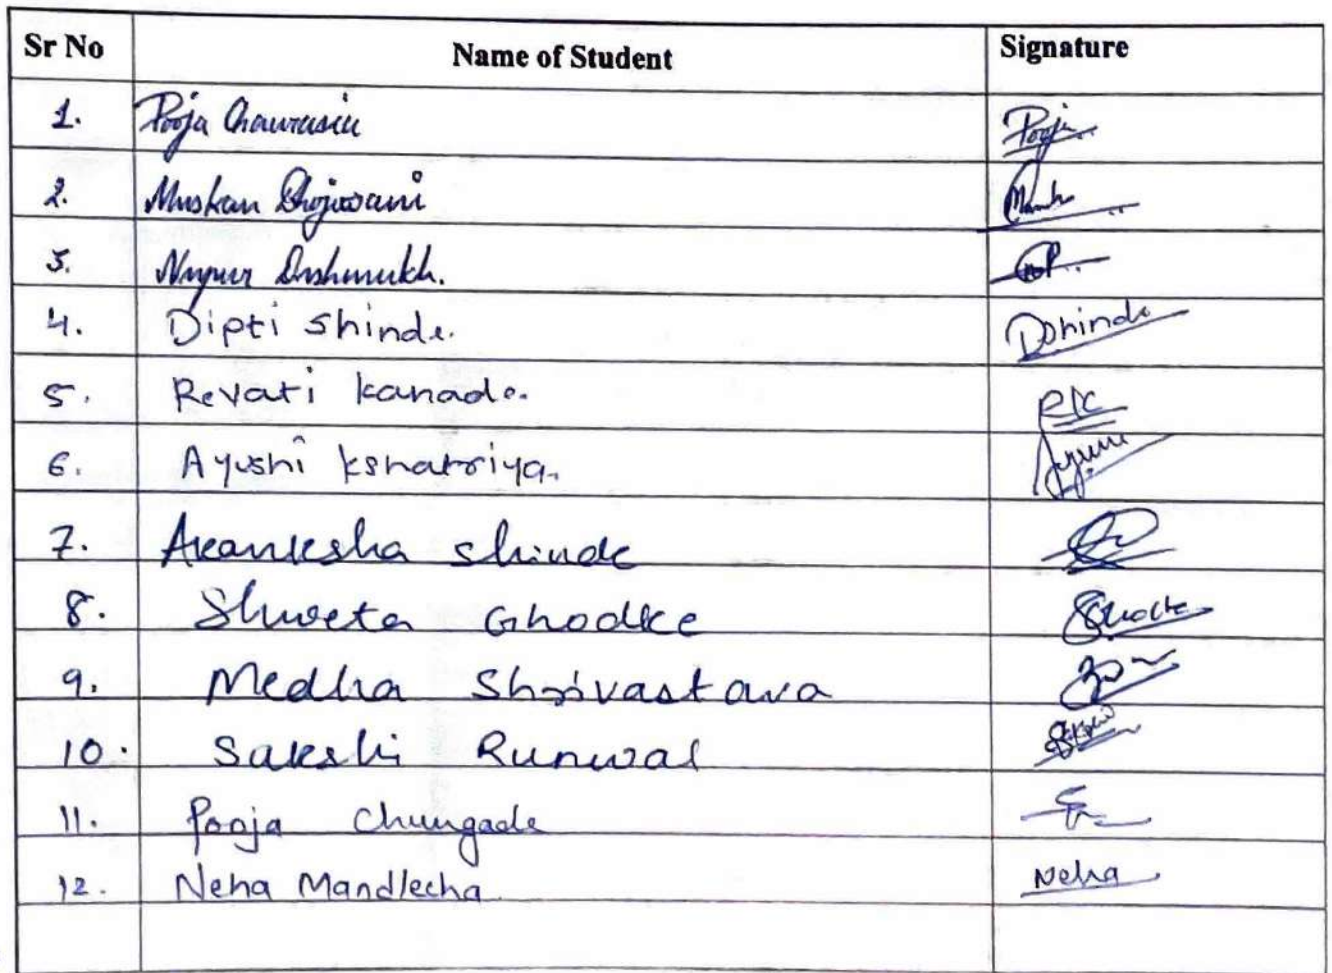 Sr No Name of Student Signature
1. Pooja Chaurasia Pooja
2. Muskan Bhojwani
3. Nupur Deshmukh.
4. Dipti Shinde. DShinde
5. Revati kanade. RK
6. Ayushi kshatriya.
7. Akanksha Shinde
8. Shweta Ghodke
9. Medha Shrivastava
10. Sakshi Runwal
11. Pooja Chungade
12. Neha Mandlecha Neha